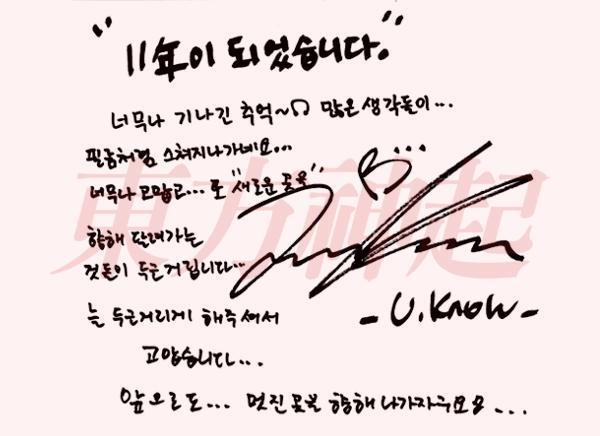 "11年이 되었습니다."
너무나 기나긴 추억~∩ 많은 생각들이...
필름처럼 스쳐지나가네요...
너무나 고맙고... 또 "새로운 공욱"
향해 달려가는
것든이 두근거립니다...
늘 두근거리게 해주셔서
- U.Know -
고맙습니다...
앞으로도... 멋진 꿈을 향해 나가자구요8 ...
東方神起